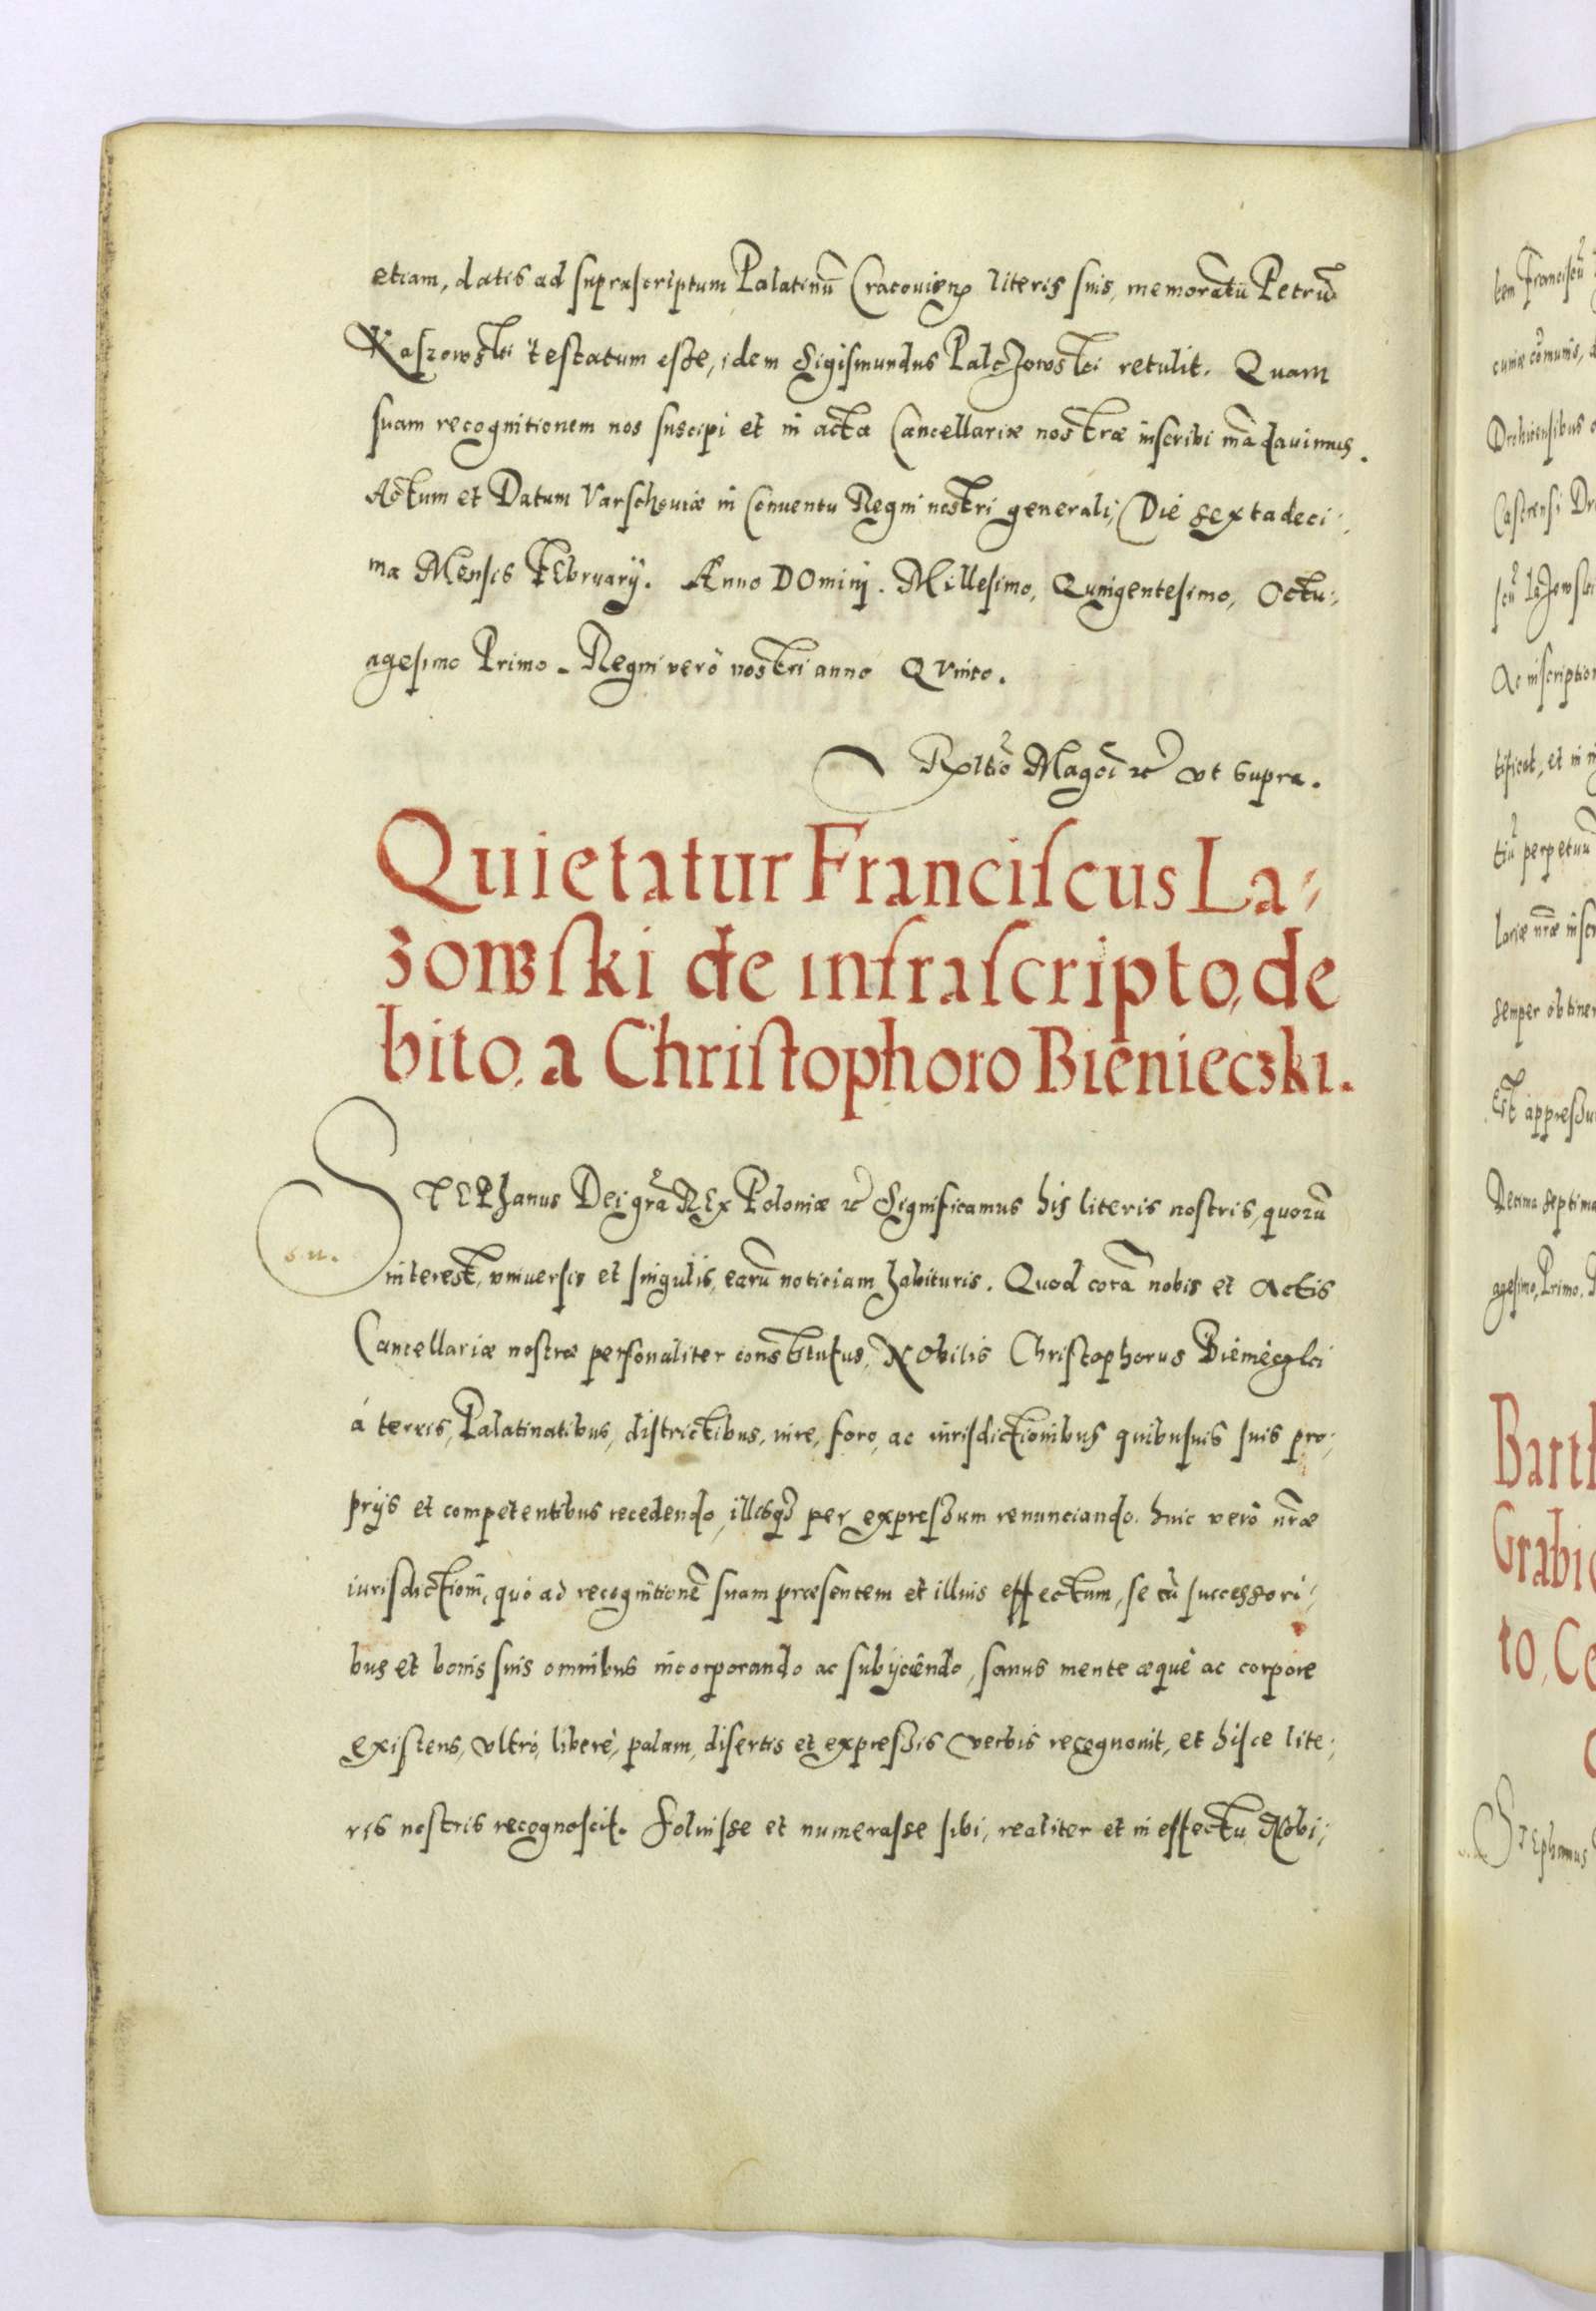 etiam, datis ad suprascriptum Palatinũ Cracovieñ literis suis, memoratũ Petrũ
Kaszowski testatum esse, idem Sigismundus Palczowski retulit. Quam
suam recognitionem nos suscipi et in acta Cancellariæ nostræ inscribi mãdavimus.
Actum et Datum Varschoviæ in Conventu Regni nostri generali, Die sextadeci-
ma Mensis FEbruarÿ. Anno DOmini. Millesimo, Quingentesimo, Octu-
agesimo Primo. Regni verò nostri anno QVinto.
Rĕltio Magci etc̃ vt supra.
Quietatur Franciscus La-
zowski de infrascripto, de
bito, a Christophoro Bienieczki.
STEPhanus Dei grã REx Poloniæ etc̃ Significamus his literis nostris, quorũ
interest, vniversis et singulis, earũ noticiam habituris. Quod corã nobis et Actis
Cancellariæ nostræ personaliter constitutus, NObilis Christophorus Bienieczki
á terris, Palatinatibus, districtibus, iure, foro, ac iurisdictionibus quibusvis suis pro-
prijs et competentibus recedendo, illisq3 per expressum renunciando. huic verò nr̃æ
iurisdictioni, quó ad recognitionẽ suam præsentem et illius effectum, se cũ successori-
bus et bonis suis omnibus incorporando ac subijciendo, sanus mente æquè ac corpore
existens, vltró, liberè, palam, disertis et expressis verbis recognovit, et hisce lite-
ris nostris recognoscit. Solvisse et numerasse sibi, realiter et in effectu, NObi-
tem Franciscũ
curiæ cõmunis,
Drohiensibus
Castrensi
scũ Lazowski
Ac inscription
tificat, et in
tiũ perpetuũ
lariæ nr̃æ inscr
semper obtiner
Est appressu
Decima septima
agesimo, Primo.
Barth
Grabi
to, Ce
STEphanus